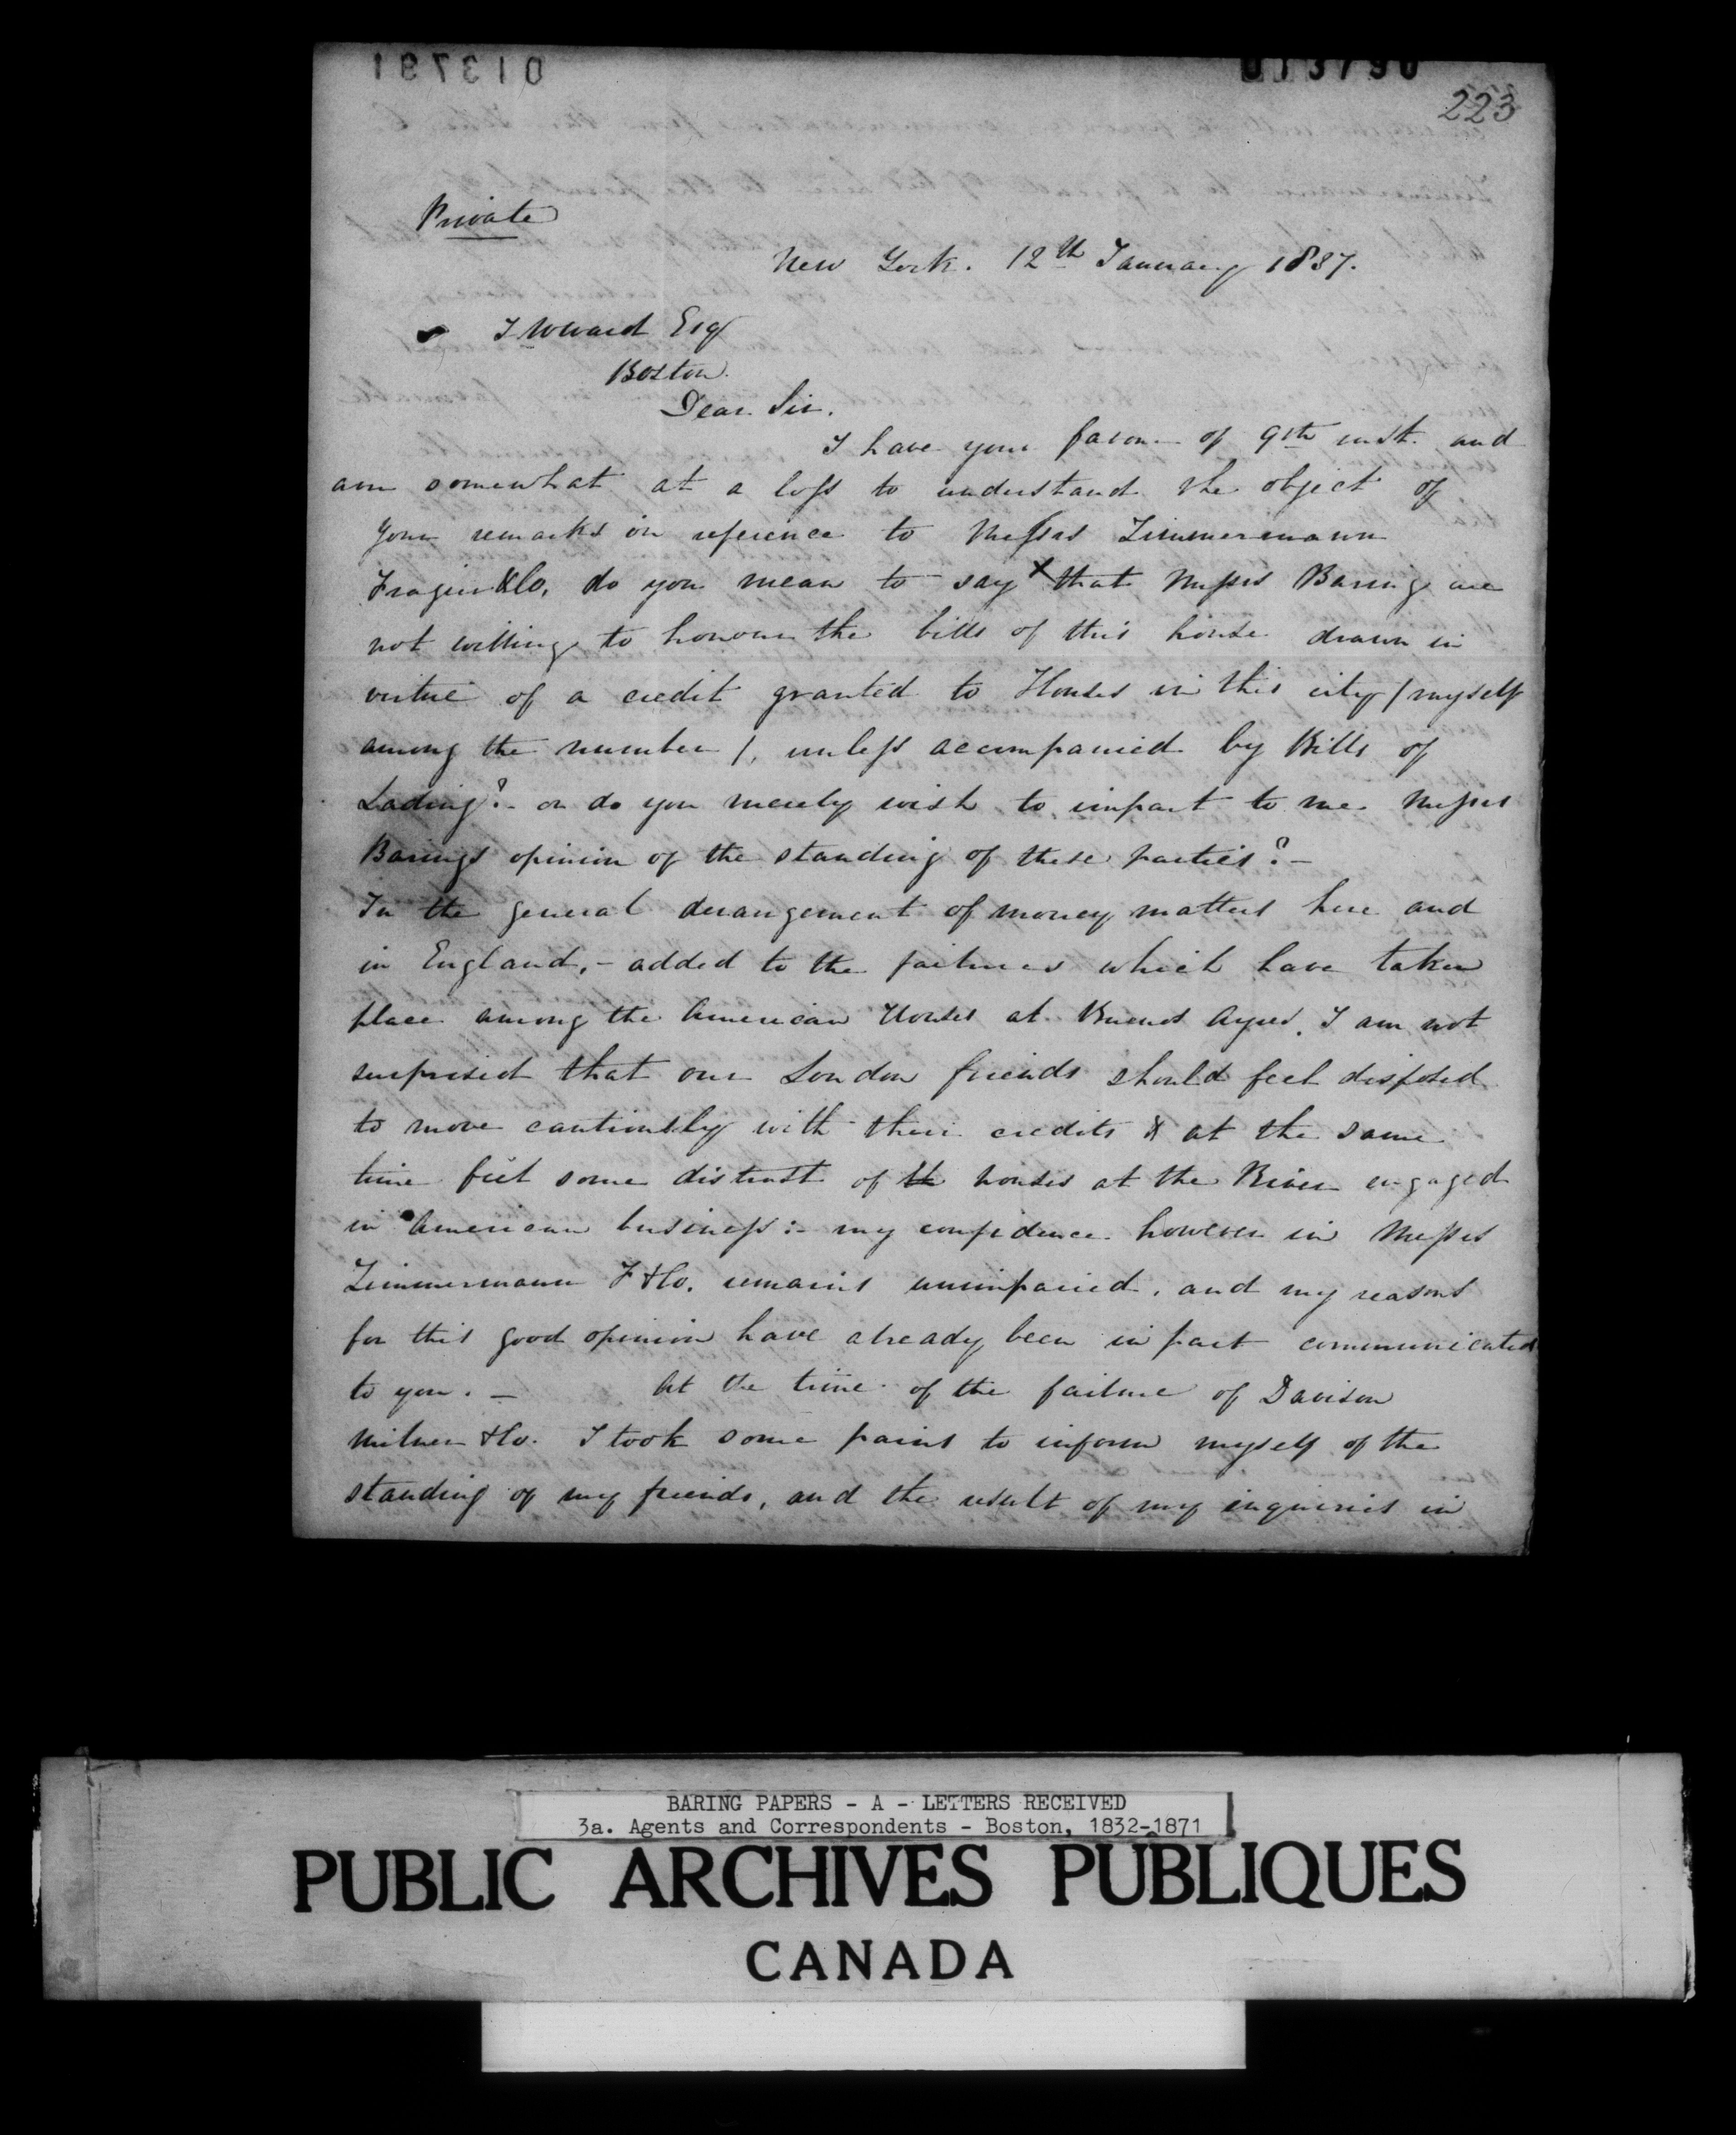 013791
013790
223
Private
New York. 12th January 1837.
T W Ward Esq
Boston.
Dear Sir.
I have your favor of 9th inst. and
am somewhat at a loss to understand the object of
your remarks in reference to Messrs Zimmermann
Frazier & Co, do you mean to say x that Messrs Baring are
not willing to honour the bills of this house drawn in
virtue of a credit granted to Houses in this city / myself
among the number /, unless accompanied by Bills of
Lading? - or do you merely wish to impart to me Messrs
Barings opinion of the standing of these parties? -
In the general derangement of money matters here and
in England, - added to the failures which have taken
place among the American Houses at Buenos Ayres. I am not
surprised that our London friends should feel disposed
to move cautiously with their credits & at the same
time feel some distrust of th houses at the River engaged
in American business :- my confidence however in Messrs
Zimmermann F & Co. remains unimpaired, and my reasons
for this good opinion have already been in part communicated
to you. - At the time of the failure of Davison
Milner & Co. I took some pains to inform myself of the
standing of my friends, and the result of my inquiries in
BARING PAPERS - A - LETTERS RECEIVED
3a. Agents and Correspondents - Boston, 1832-1871
PUBLIC ARCHIVES PUBLIQUES
CANADA